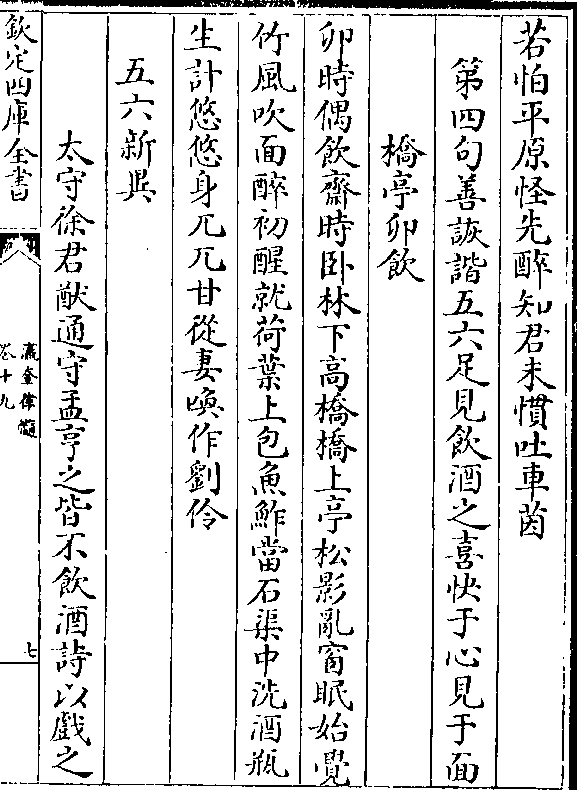 若怕平原怪先醉知君未慣吐車茵
第四句善詼諧五六足見飲酒之喜快于心見于面
橋亭卯飲
卯時偶飲齋時卧林下高橋橋上亭松影亂窗眠始覺
竹風吹面醉初醒就荷葉上包魚鮓當石渠中洗酒瓶
生計悠悠身兀兀甘從妻喚作劉伶
五六新異
太守徐君猷通守孟亨之皆不飲酒詩以戲之
欽定四庫全書
瀛奎律髓
卷十九
七